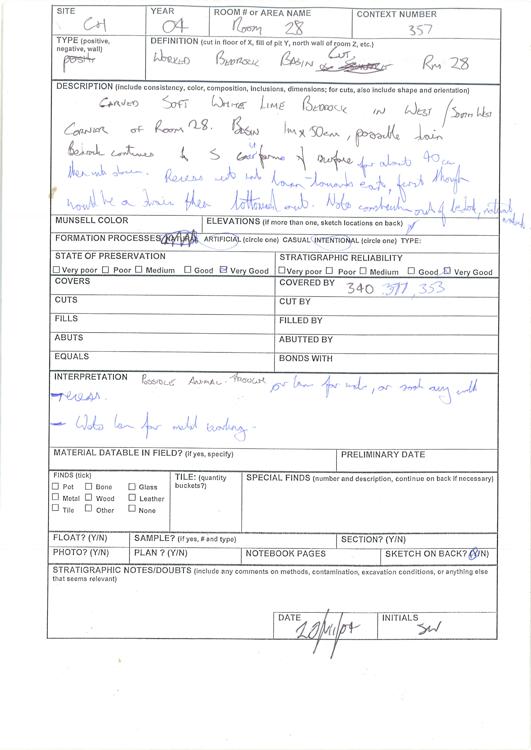 SITE YEAR ROOM # OR AREA NAME CONTEXT NUMBER
CH 04 Room 28 357
TYPE (positive, negative, wall) DEFINITION (cut in floor of X, fill of pit Y, north wall of room Z, etc.)
WORKED BEDROCK BASIN CUT, Rm 28
DESCRIPTION (include consistency, color, composition, inclusions, dimensions; for cuts, also include shape and orientation)
CARVED SOFT WHITE LIME BEDROCK IN WEST / South West
CORNER OF ROOM 28. BASIN 1m x 50cm, possible
Bedrock continues to S surface for about 40cm
then down. Recess into towards east, first thought
would be a drain then bottomed out. Note out of
MUNSELL COLOR ELEVATIONS (if more than one, sketch locations on back)
FORMATION PROCESSES ARTIFICIAL (circle one) CASUAL INTENTIONAL (circle one) TYPE:
STATE OF PRESERVATION STRATIGRAPHIC RELIABILITY
Very poor Poor Medium Good Very Good Very poor Poor Medium Good Very Good
COVERS COVERED BY 340 353
CUTS CUT BY
FILLS FILLED BY
ABUTS ABUTTED BY
EQUALS BONDS WITH
INTERPRETATION POSSIBLE ANIMAL TROUGH or for or with
recess.
- for metal working.
MATERIAL DATABLE IN FIELD? (if yes, specify) PRELIMINARY DATE
FINDS (tick) TILE: (quantity buckets?) SPECIAL FINDS (number and description, continue on back if necessary)
Pot Bone Glass
Metal Wood Leather
Tile Other None
FLOAT? (Y/N) SAMPLE? (if yes, # and type) SECTION? (Y/N)
PHOTO? (Y/N) PLAN ? (Y/N) NOTEBOOK PAGES SKETCH ON BACK? (Y/N)
STRATIGRAPHIC NOTES/DOUBTS (include any comments on methods, contamination, excavation conditions, or anything else
that seems relevant)
DATE INITIALS
20/11/04 SW